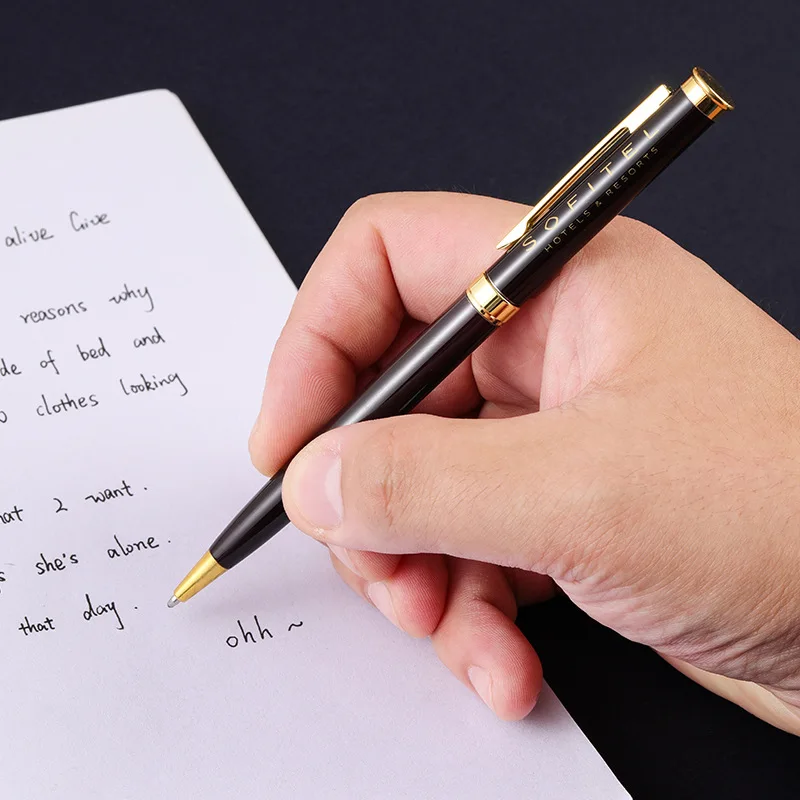 alive Give
reasons why
de of bed and
clothes looking
hat 2 want.
s she's alone.
that day.
ohh ~
SOFITEL
HOTELS & RESORTS